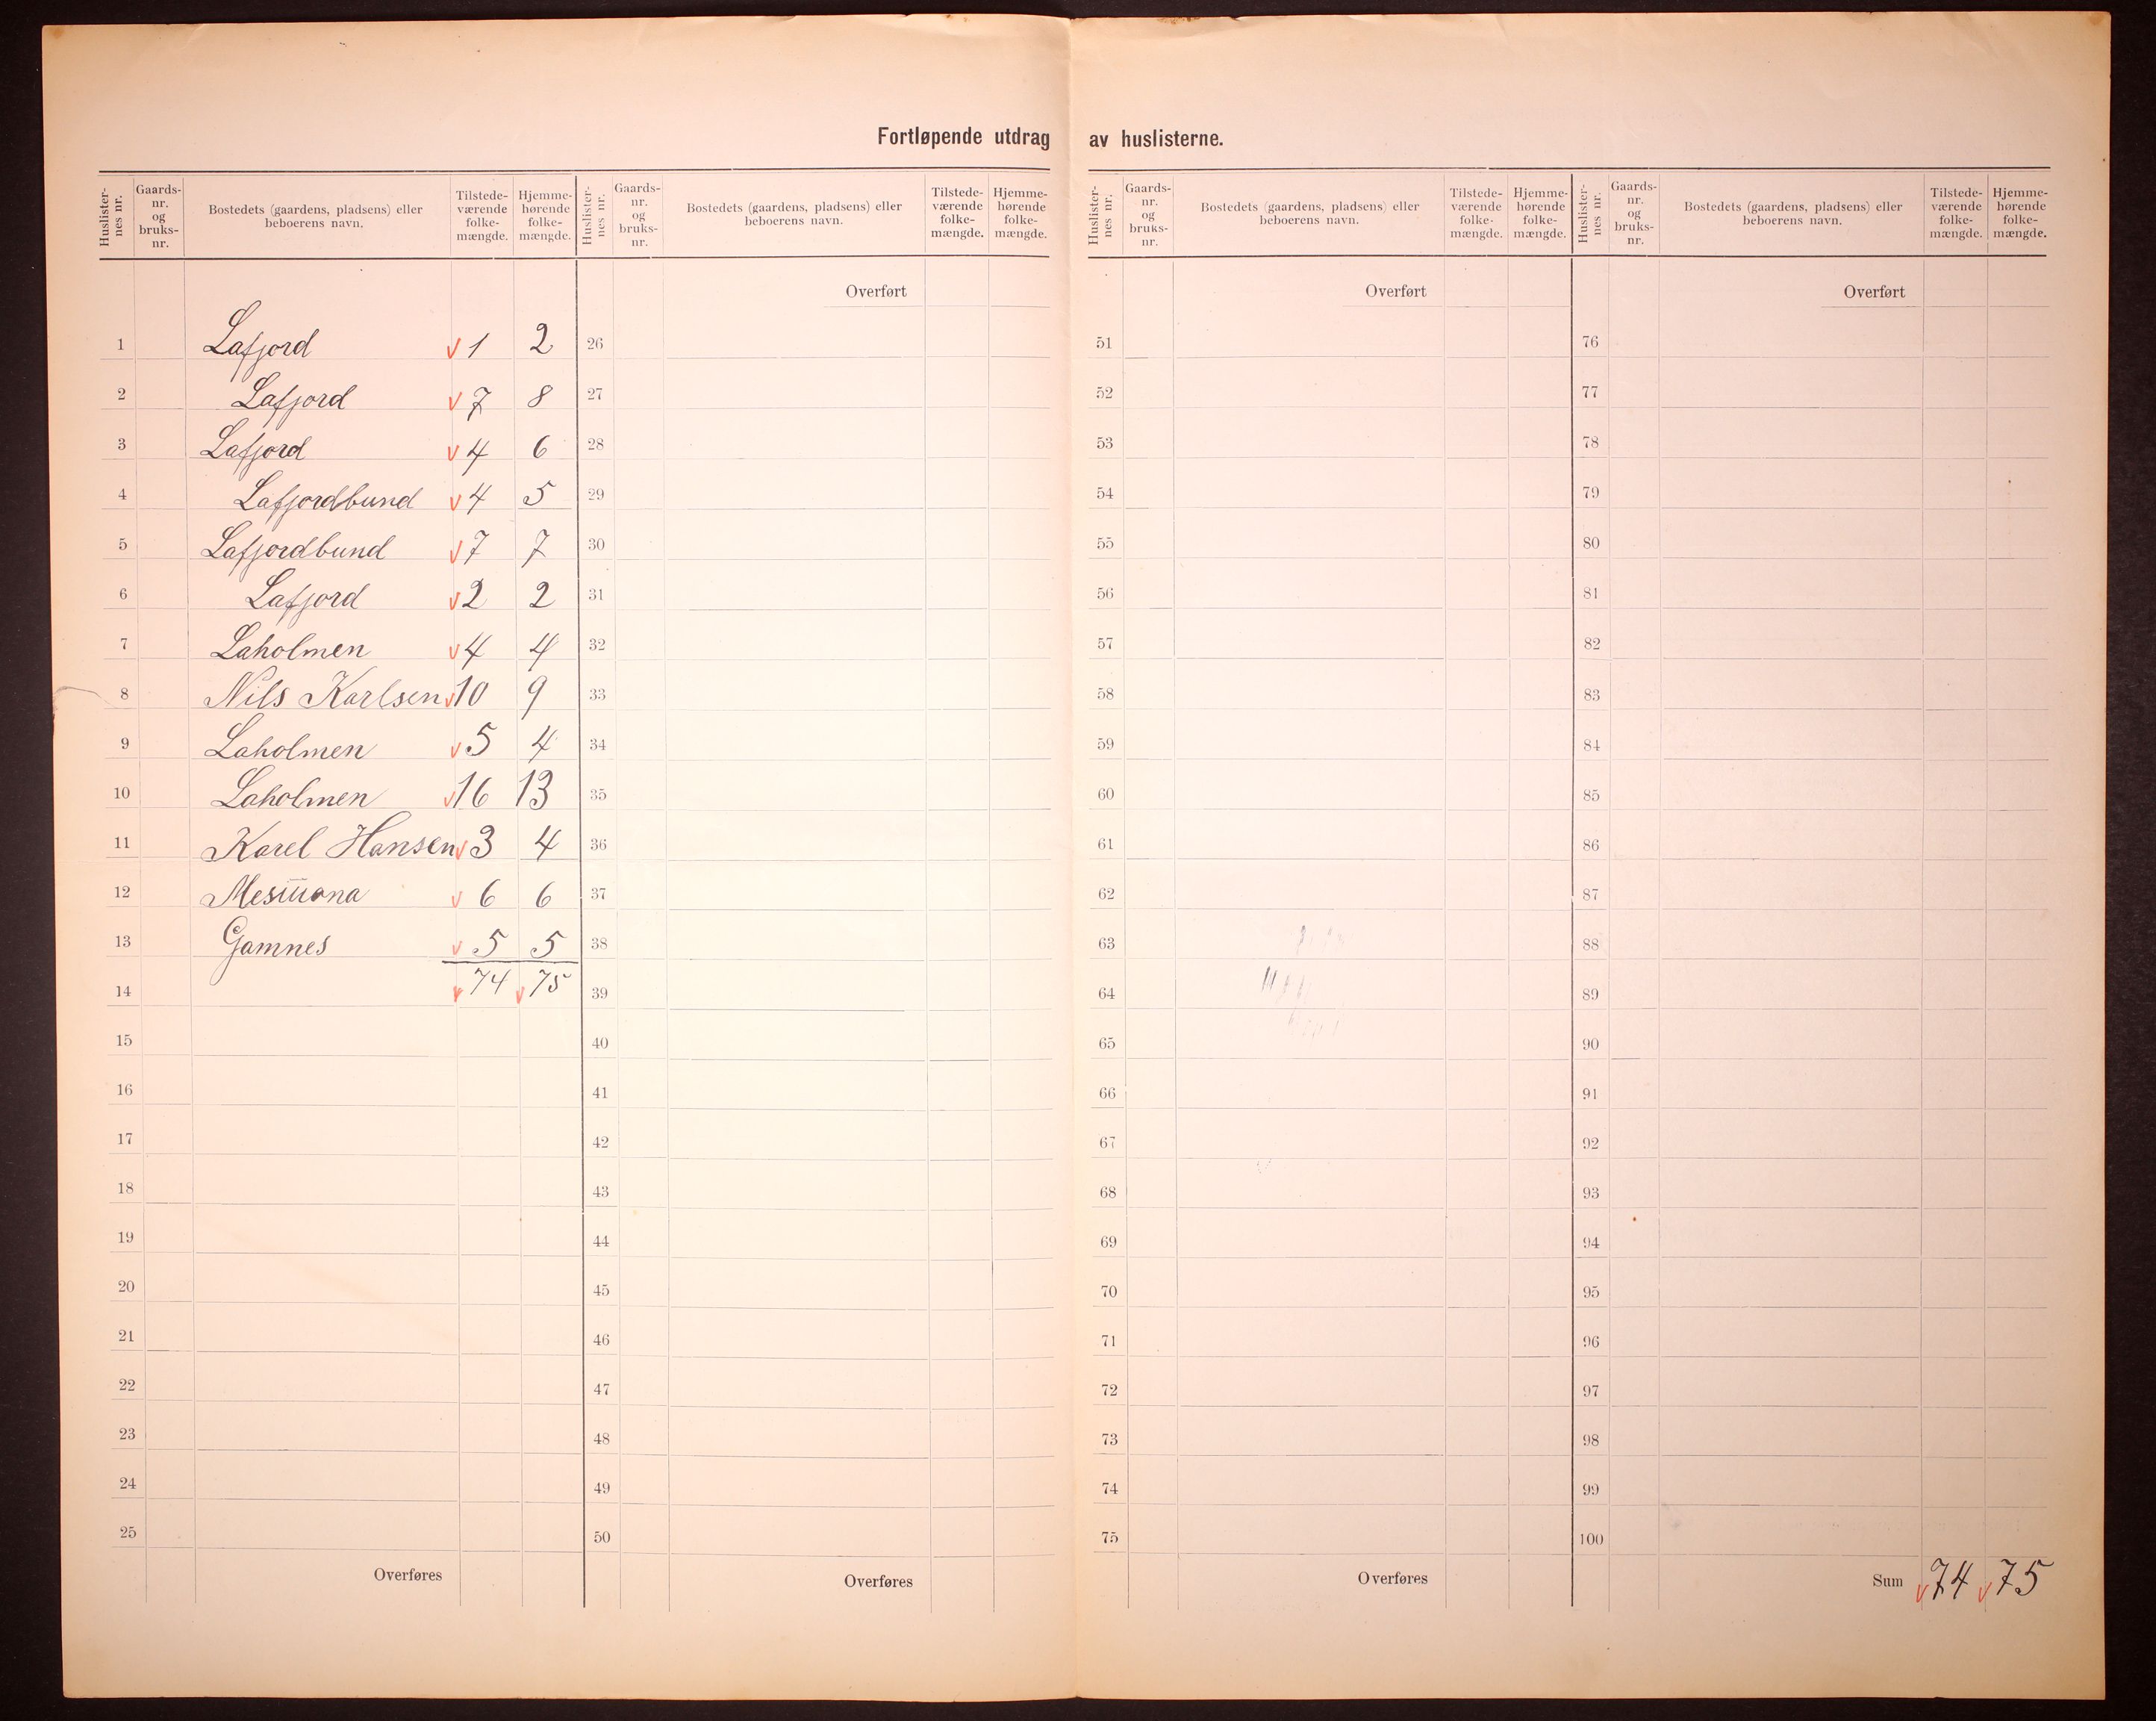 Fortløpende utdrag av huslisterne.
Huslisternes nr. Gaards-nr. og bruks-nr. Bostedets (gaardens, pladsens) eller beboerens navn. Tilstedeværende folkemængde. Hjemmehørende folkemængde.
1 Lafjord v 1 2
2 Lafjord v 7 8
3 Lafjord v 4 6
4 Lafjordbund v 4 5
5 Lafjordbund v 7 7
6 Lafjord v 2 2
7 Laholmen v 4 4
8 Nils Karlsen v 10 9
9 Laholmen v 5 4
10 Laholmen v 16 13
11 Karel Hansen v 3 4
12 v 6 6
13 Gamnes v 5 5
14 v 74 v 75
15
16
17
18
19
20
21
22
23
24
25
Overføres
Huslisternes nr. Gaards-nr. og bruks-nr. Bostedets (gaardens, pladsens) eller beboerens navn. Tilstedeværende folkemængde. Hjemmehørende folkemængde.
Overført
26
27
28
29
30
31
32
33
34
35
36
37
38
39
40
41
42
43
44
45
46
47
48
49
50
Overføres
Huslisternes nr. Gaards-nr. og bruks-nr. Bostedets (gaardens, pladsens) eller beboerens navn. Tilstedeværende folke-mængde. Hjemmehørende folke-mængde.
Overført
51
52
53
54
55
56
57
58
59
60
61
62
63
64
65
66
67
68
69
70
71
72
73
74
75
Overføres
Huslisternes nr. Gaards-nr. og bruks-nr. Bostedets (gaardens, pladsens) eller beboerens navn. Tilstedeværende folke-mængde. Hjemmehørende folke-mængde.
Overført
76
77
78
79
80
81
82
83
84
85
86
87
88
89
90
91
92
93
94
95
96
97
98
99
100
Sum v 74 v 75